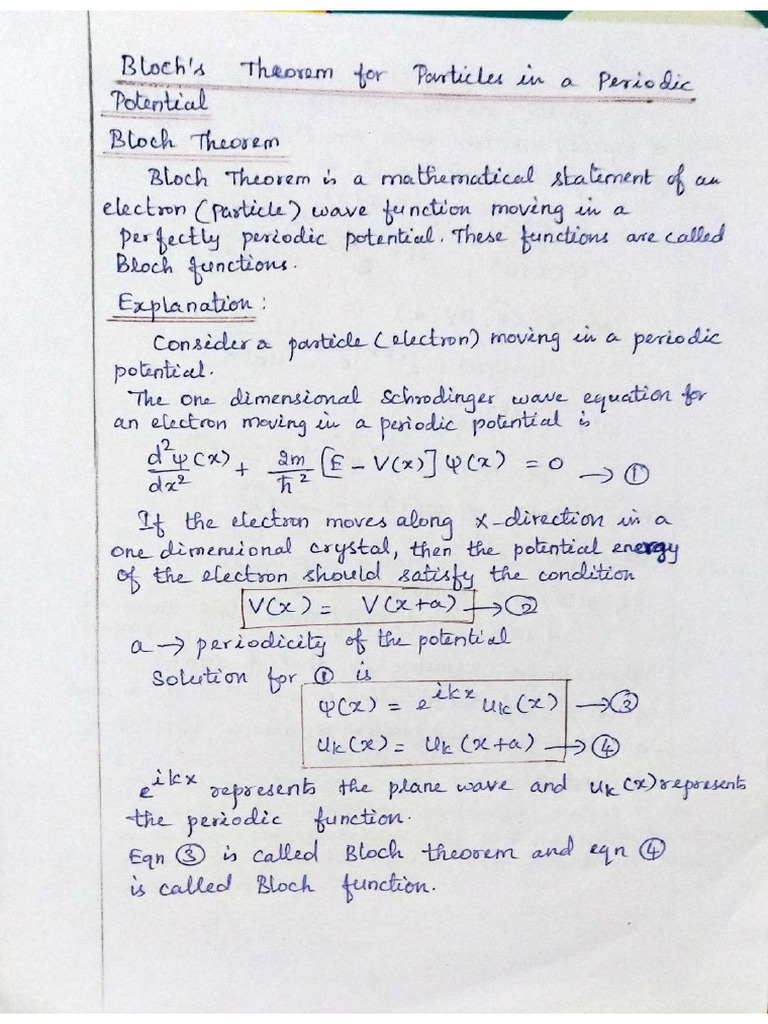 Bloch's Theorem for Particles in a Periodic
Potential
Bloch Theorem
Bloch Theorem is a mathematical statement of an
electron (particle) wave function moving in a
perfectly periodic potential. These functions are called
Bloch functions.
Explanation:
Consider a particle (electron) moving in a periodic
potential.
The one dimensional Schrodinger wave equation for
an electron moving in a periodic potential is
d²ψ(x)/dx² + 2m/ħ² [E - V(x)] ψ(x) = 0 → ①
If the electron moves along x-direction in a
one dimensional crystal, then the potential energy
of the electron should satisfy the condition
V(x) = V(x+a) → ②
a → periodicity of the potential
Solution for ① is
ψ(x) = e^{ikx} u_k(x) → ③
u_k(x) = u_k(x+a) → ④
e^{ikx} represents the plane wave and u_k(x) represents
the periodic function.
Eqn ③ is called Bloch theorem and eqn ④
is called Bloch function.